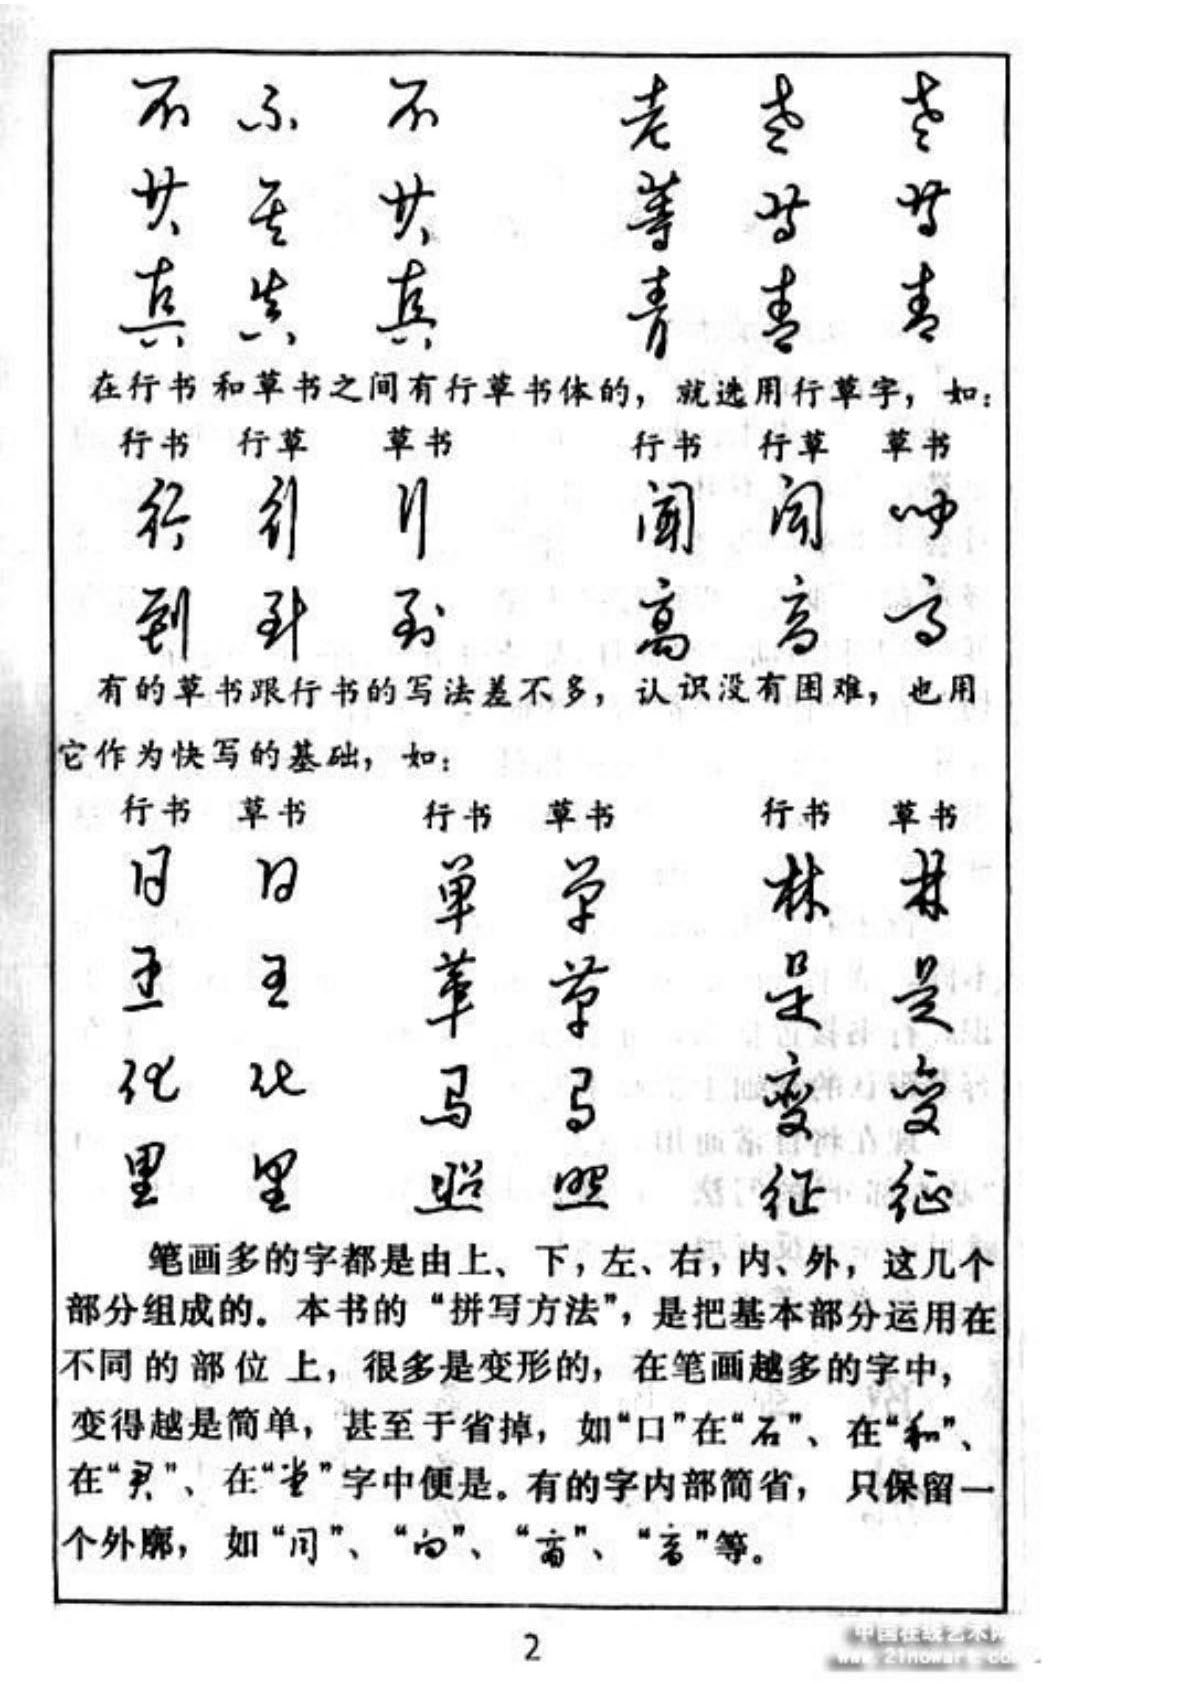 不 不 不 老 老 老
共 共 共 等 等 等
真 真 真 青 青 青
在行书和草书之间有行草书体的，就选用行草字，如：
行书 行草 草书 行书 行草 草书
行 行 行 闻 闻 闻
到 到 到 高 高 高
有的草书跟行书的写法差不多，认识没有困难，也用
它作为快写的基础，如：
行书 草书 行书 草书 行书 草书
日 日 单 单 林 林
王 王 草 草 是 是
化 化 马 马 变 变
里 里 照 照 征 征
笔画多的字都是由上、下，左、右，内、外，这几个
部分组成的。本书的“拼写方法”，是把基本部分运用在
不同的部位上，很多是变形的，在笔画越多的字中，
变得越是简单，甚至于省掉，如“口”在“石”、在“和”、
在“君”、在“堂”字中便是。有的字内部简省，只保留一
个外廓，如“间”、“向”、“”、“”等。
2
中国在线艺术网
www.21nowart.com